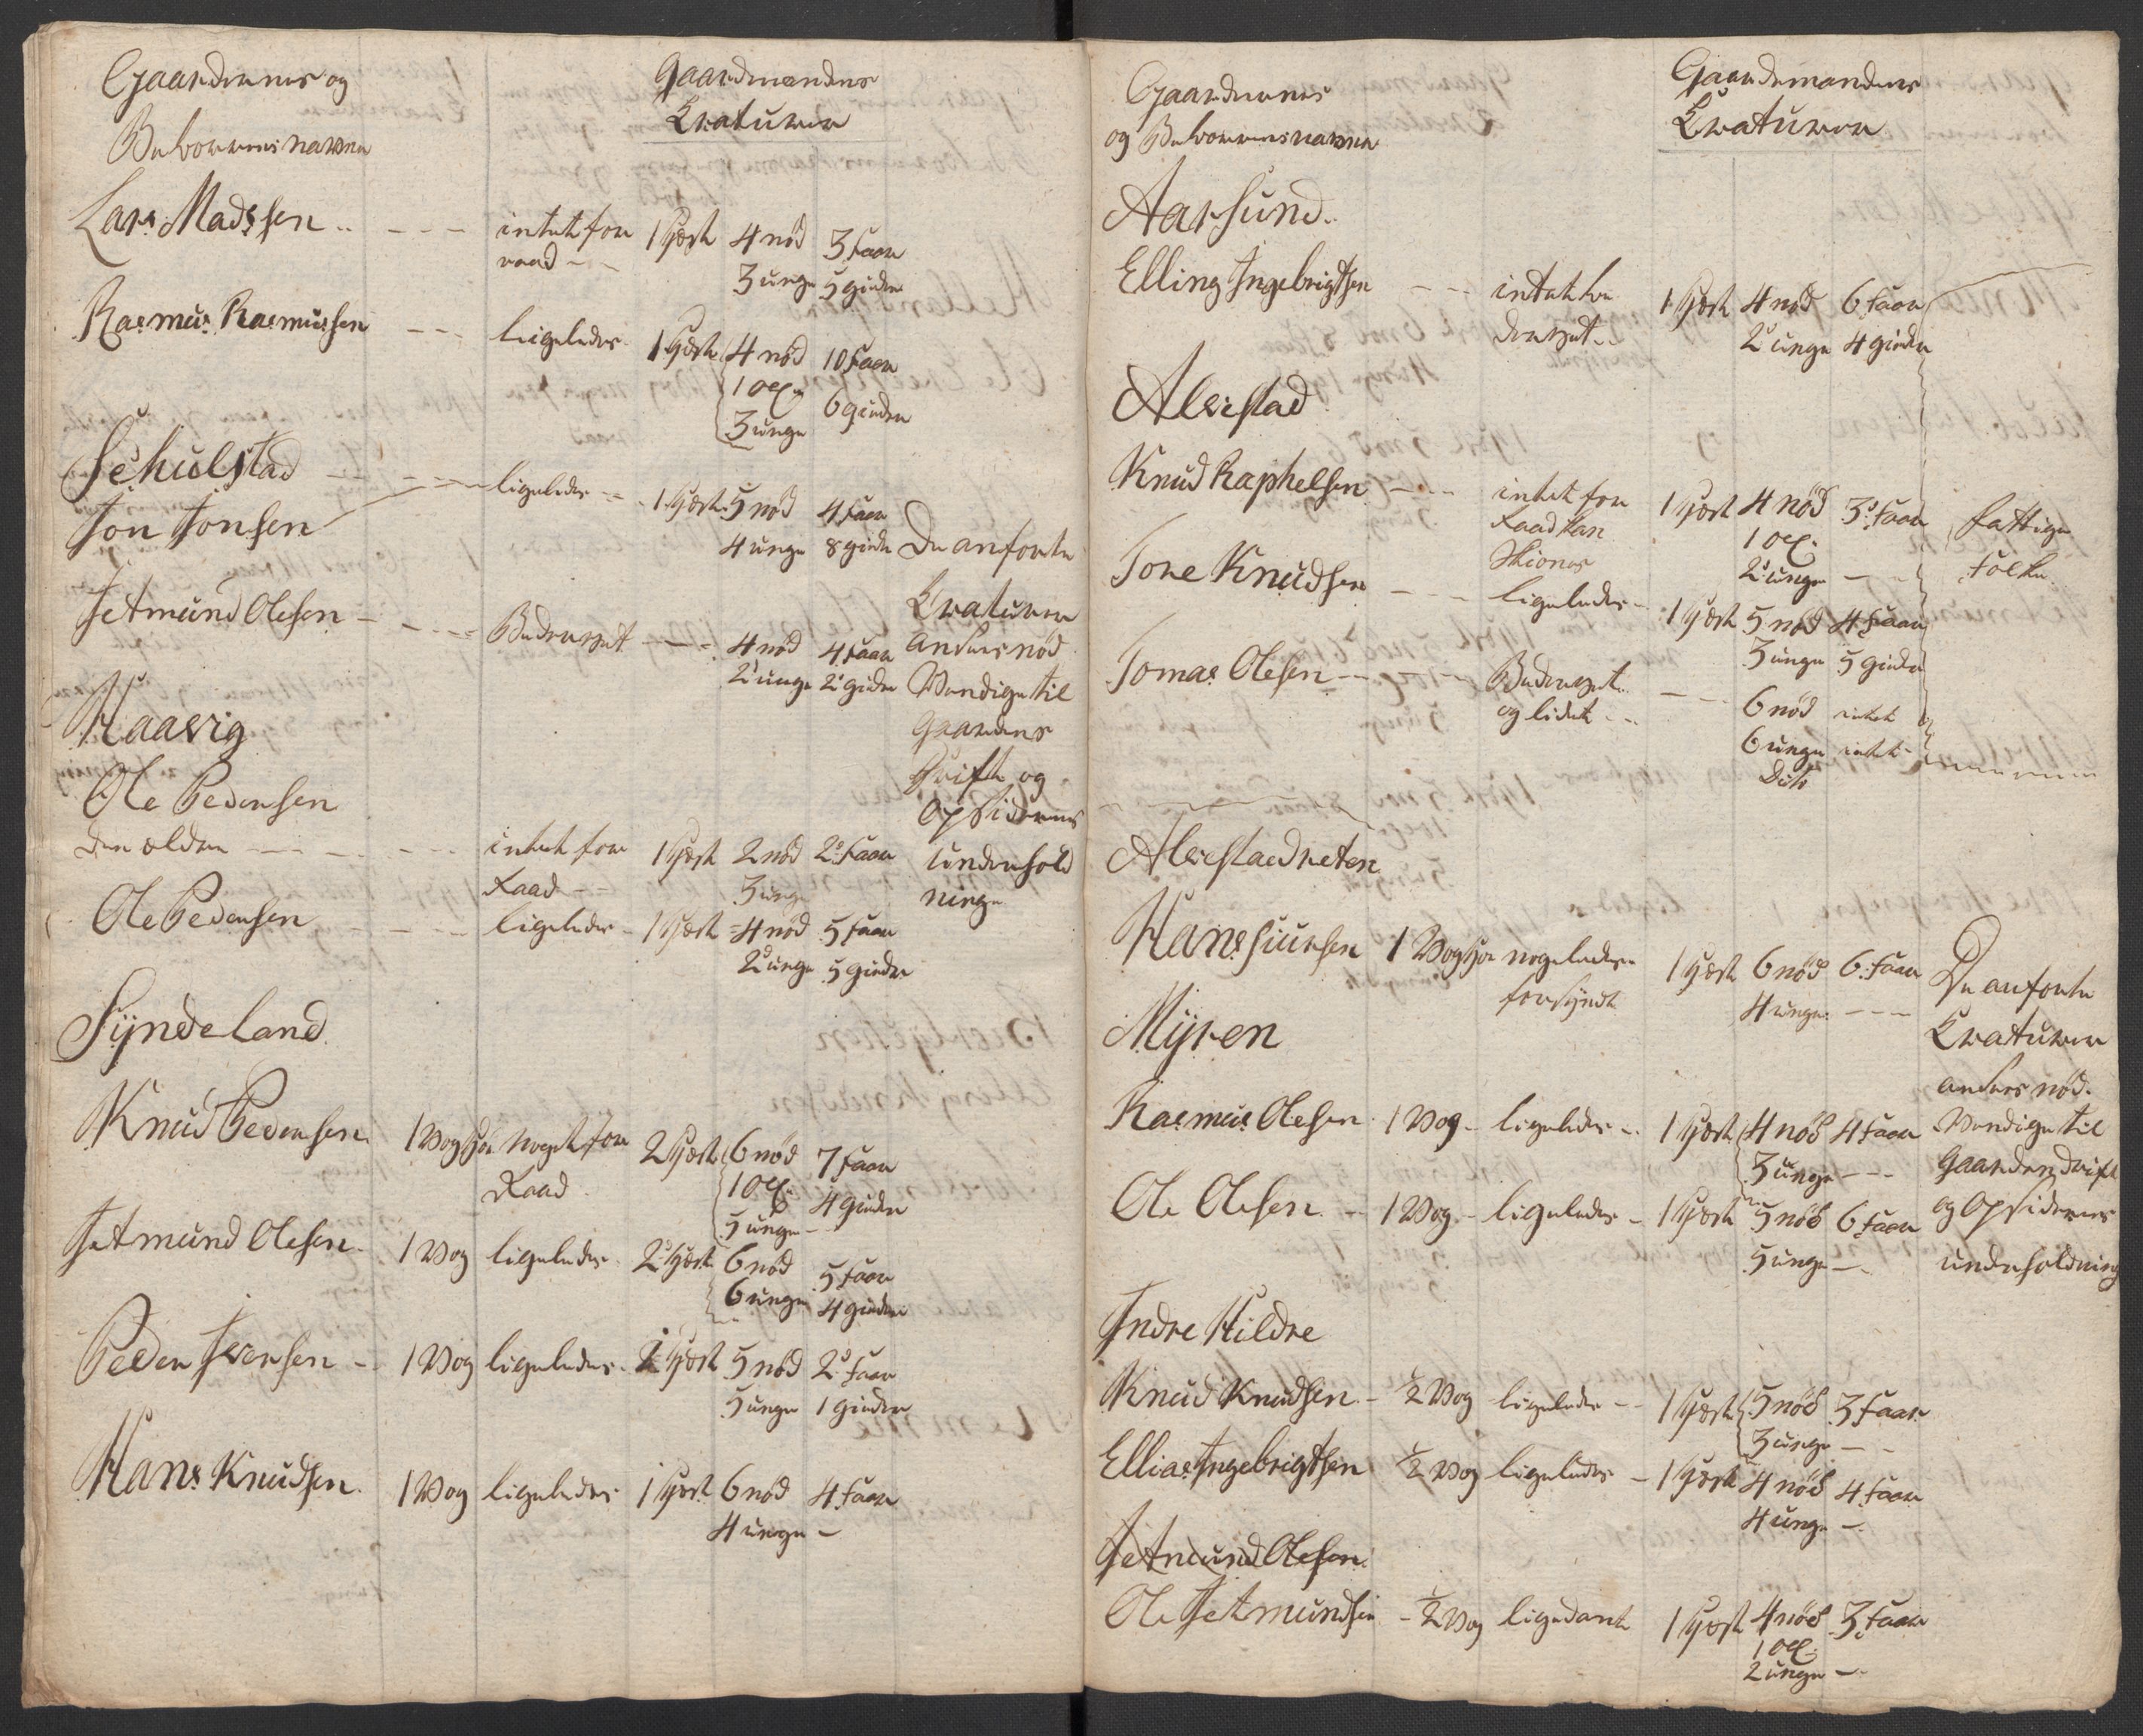 Gaardernes og
Beboernes navne
Gaardmandens
Kreaturer
Lars Madssen .. - - - intet for 1 Hæst 4 nød 3 Faar
raad - - 3 unge 5 gieder
Rasmus Rasmussen - - - ligeledes 1 Hæst 4 nød 10 Faar
1 oxe 6 gieder
3 unge
Schulstad
Jon Jonsen - - ligeledes - - 1 Hæst 5 nød 4 Faar
4 unge 8 gieder
Jetmund Olesen - - - - 4 nød 4 Faar
2 unge 2 gieder
De anforte
Kreaturer
ansees nød
Vendige til
Gaardens
Drift og
Opsidernes
underhold
ninge
Haavig
Ole Pedersen
den ældre - - - intet for 1 Hæst 2 nød 2 Faar
Raad - - 3 unge
Ole Pedersen - - - ligeledes - 1 Hæst 4 nød 5 Faar
2 unge 5 gieder
Syndeland
Knud Pedersen 1 Vog Hør noget for 2 Hæst 6 nød 7 Faar
Raad 1 oxe 4 gieder
5 unge -
Jetmund Olesen 1 Vog ligeledes 2 Hæst 6 nød 5 Faar
6 unge 4 gieder
Peder Iversen - 1 Vog ligeledes 1 Hæst 5 nød 2 Faar
5 unge 1 gieder
Hans Knudsen 1 Vog ligeledes 1 Hæst 6 nød 4 Faar
4 unge -
Gaardernes
og Beboernes navne
Gaardmandens
Kreaturer
Aarsund
Elling Ingebrigtsen - - 1 Hæst 4 nød 6 Faar
2 unge 4 gieder
Alvestad
Knud Raphelsen - - intet for 1 Hæst 4 nød 3 Faar
Raad kan 1 oxe
Skiønes 2 unge -
Fattige
Folk
Tore Knudsen - - - ligeledes - 1 Hæst 5 nød 4 Faar
3 unge 5 gieder
Tomas Olesen - - - 6 nød intet
og lidet - - 6 unge intet
Dito
Alvestadneten
Hans Siursen 1 Vog Hør nogeledes 1 Hæst 6 nød 6 Faar
forsynt 4 unge - - -
De anforte
Kreaturer
ansees nød.
Vendige til
Gaardens drift
og Opsidernes
underholdning
Myren
Rasmus Olesen 1 Vog - ligeledes - 1 Hæst 4 nød 4 Faar
3 unge - -
Ole Olesen - 1 Vog - ligeledes - 1 Hæst 5 nød 6 Faar
5 unge -
Indre Hildre
Knud Knudsen - ½ Vog ligeledes - - 1 Hæst 5 nød 3 Faar
3 unge - -
Ellias Ingebrigtsen ½ Vog ligeledes - 1 Hæst 4 nød 4 Faar
4 unge -
Jetmund Olesen
Ole Jetmundsen - ½ Vog ligedant 1 Hæst 4 nød 3 Faar
1 oxe
2 unge -